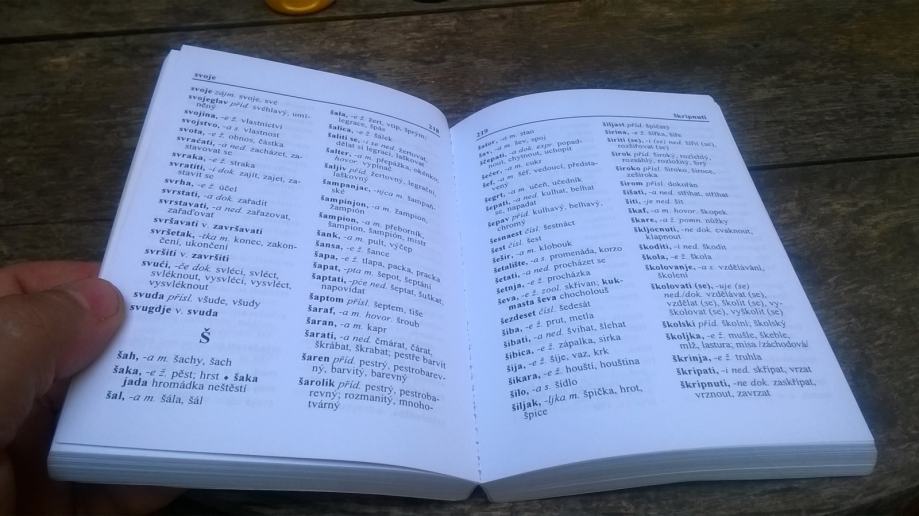 svoje
218
svoje zájm. svoje, své
svojeglav příd. svéhlavý, umí-
něný
svojina, -e ž. vlastnictví
svojstvo, -a s. vlastnost
svota, -e ž. obnos, částka
svraćati, -a ned. zacházet, za-
stavovat se
svraka, -e ž. straka
svratiti, -i dok. zajít, zajet, za-
stavit se
svrha, -e ž. účel
svrstati, -a dok. zařadit
svrstavati, -a ned. zařazovat,
zařaďovat
svršavati v. završavati
svršetak, -tka m. konec, zakon-
čení, ukončení
svršiti v. završiti
svući, -če dok. svléci, svléct,
svléknout, vysvléci, vysvléct,
vysvléknout
svuda přísl. všude, všudy
svugdje v. svuda
Š
šah, -a m. šachy, šach
šaka, -e ž. pěst; hrst • šaka
jada hromádka neštěstí
šal, -a m. šála, šál
šala, -e ž. žert, vtip, šprým,
legrace, špás
šalica, -e ž. šálek
šaliti se, -i se ned. žertovat,
dělat si legraci, laškovat
šalter, -a m. přepážka, okénko;
hovor. vypínač
šaljiv příd. žertovný, legrační,
laškovný
šampanjac, -njca m. šampaň-
ské
šampinjon, -a m. žampion,
žampión
šampion, -a m. přeborník,
šampion, šampión, mistr
šank, -a m. pult, výčep
šansa, -e ž. šance
šapa, -e ž. tlapa, packa, pracka
šapat, -pta m. šepot, šeptání
šaptati, -pće ned. šeptat, šuškat,
napovídat
šaptom přísl. šeptem, tiše
šaraf, -a m. hovor. šroub
šaran, -a m. kapr
šarati, -a ned. čmárat, čárat,
škrábat, škrabat; pestře barvit
šaren příd. pestrý, pestrobarev-
ný, barvitý, barevný
šarolik příd. pestrý, pestroba-
revný; rozmanitý, mnoho-
tvárný
219
škripnuti
šator, -a m. stan
šav, -a m. šev, spoj
ščepati, -a dok. expr. popad-
nout, chytnout, uchopit
šećer, -a m. cukr
šef, -a m. šéf, vedoucí, předsta-
vený
šegrt, -a m. učeň, učedník
šepati, -a ned. kulhat, belhat
se, napadat
šepav příd. kulhavý, belhavý,
chromý
šesnaest čísl. šestnáct
šest čísl. šest
šešir, -a m. klobouk
šetalište, -a s. promenáda, korzo
šetati, -a ned. procházet se
šetnja, -e ž. procházka
ševa, -e ž. zool. skřivan; kuk-
masta ševa chocholouš
šezdeset čísl. šedesát
šiba, -e ž. prut, metla
šibati, -a ned. švihat, šlehat
šibica, -e ž. zápalka, sirka
šija, -e ž. šíje, vaz, krk
šikara, -e ž. houští, houština
šilo, -a s. šídlo
šiljak, -ljka m. špička, hrot,
špice
šiljast příd. špičatý
širina, -e ž. šířka, šíře
širiti (se), -i (se) ned. šířit (se),
rozšiřovat (se)
širok příd. široký, rozlehlý,
rozsáhlý, rozložitý, širý
široko přísl. široko, široce,
zeširoka
širom přísl. dokořán
šišati, -a ned. stříhat, stříhat
šiti, -je ned. šít
škaf, -a m. hovor. škopek
škare, -a ž. pomn. nůžky
škljocnuti, -ne dok. cvaknout,
klapnout
škoditi, -i ned. škodit
škola, -e ž. škola
školovanje, -a s. vzdělávání,
školení
školovati (se), -uje (se)
ned./dok. vzdělávat (se),
vzdělat (se), školit (se), vy-
školovat (se), vyškolit (se)
školski příd. školní; školský
školjka, -e ž. mušle, škeble,
mlž, lastura; mísa (záchodová)
škrinja, -e ž. truhla
škripati, -i ned. skřípat, vrzat
škripnuti, -ne dok. zaskřípat,
vrznout, zavrzat